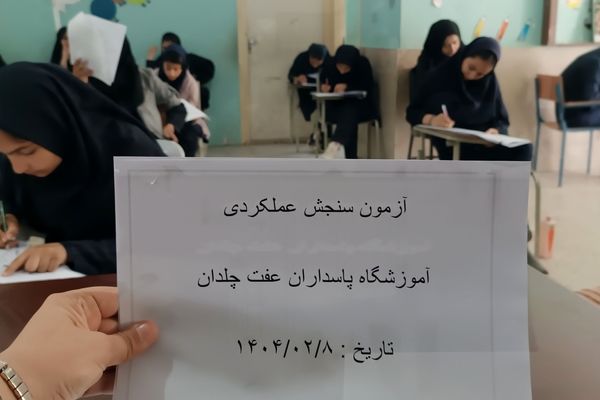 آزمون سنجش عملکردی
آموزشگاه پاسداران عفت چلدان
تاریخ : ۱۴۰۴/۰۲/۸